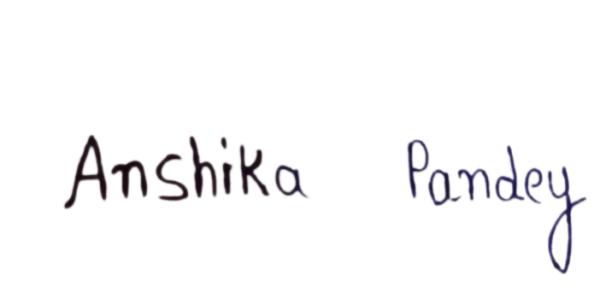 Anshika Pandey